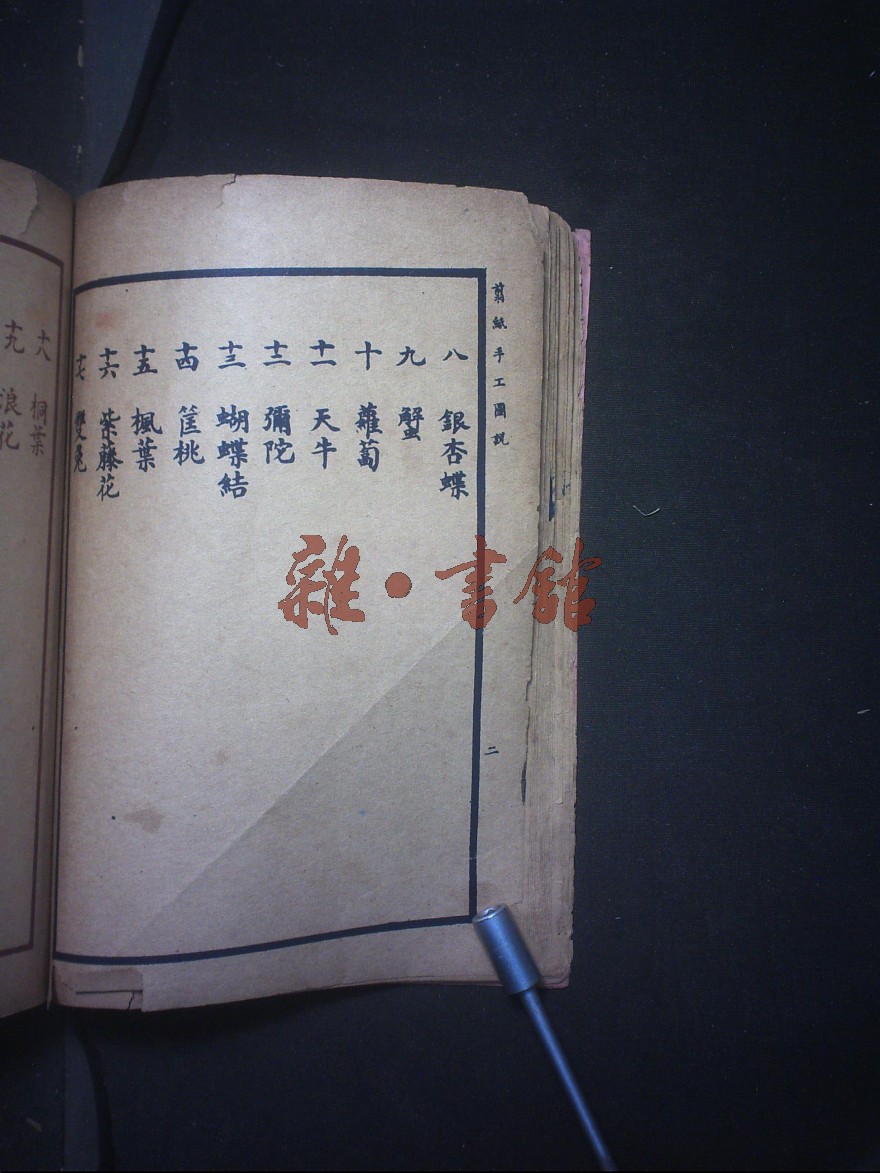 翦紙手工圖說
二
八 銀杏蝶
九 蟹
十 蘿蔔
十一 天牛
十二 彌陀
十三 蝴蝶結
十四 筐桃
十五 楓葉
十六 紫藤花
十七 雙兔
十八 桐葉
十九 浪花
雜·書館